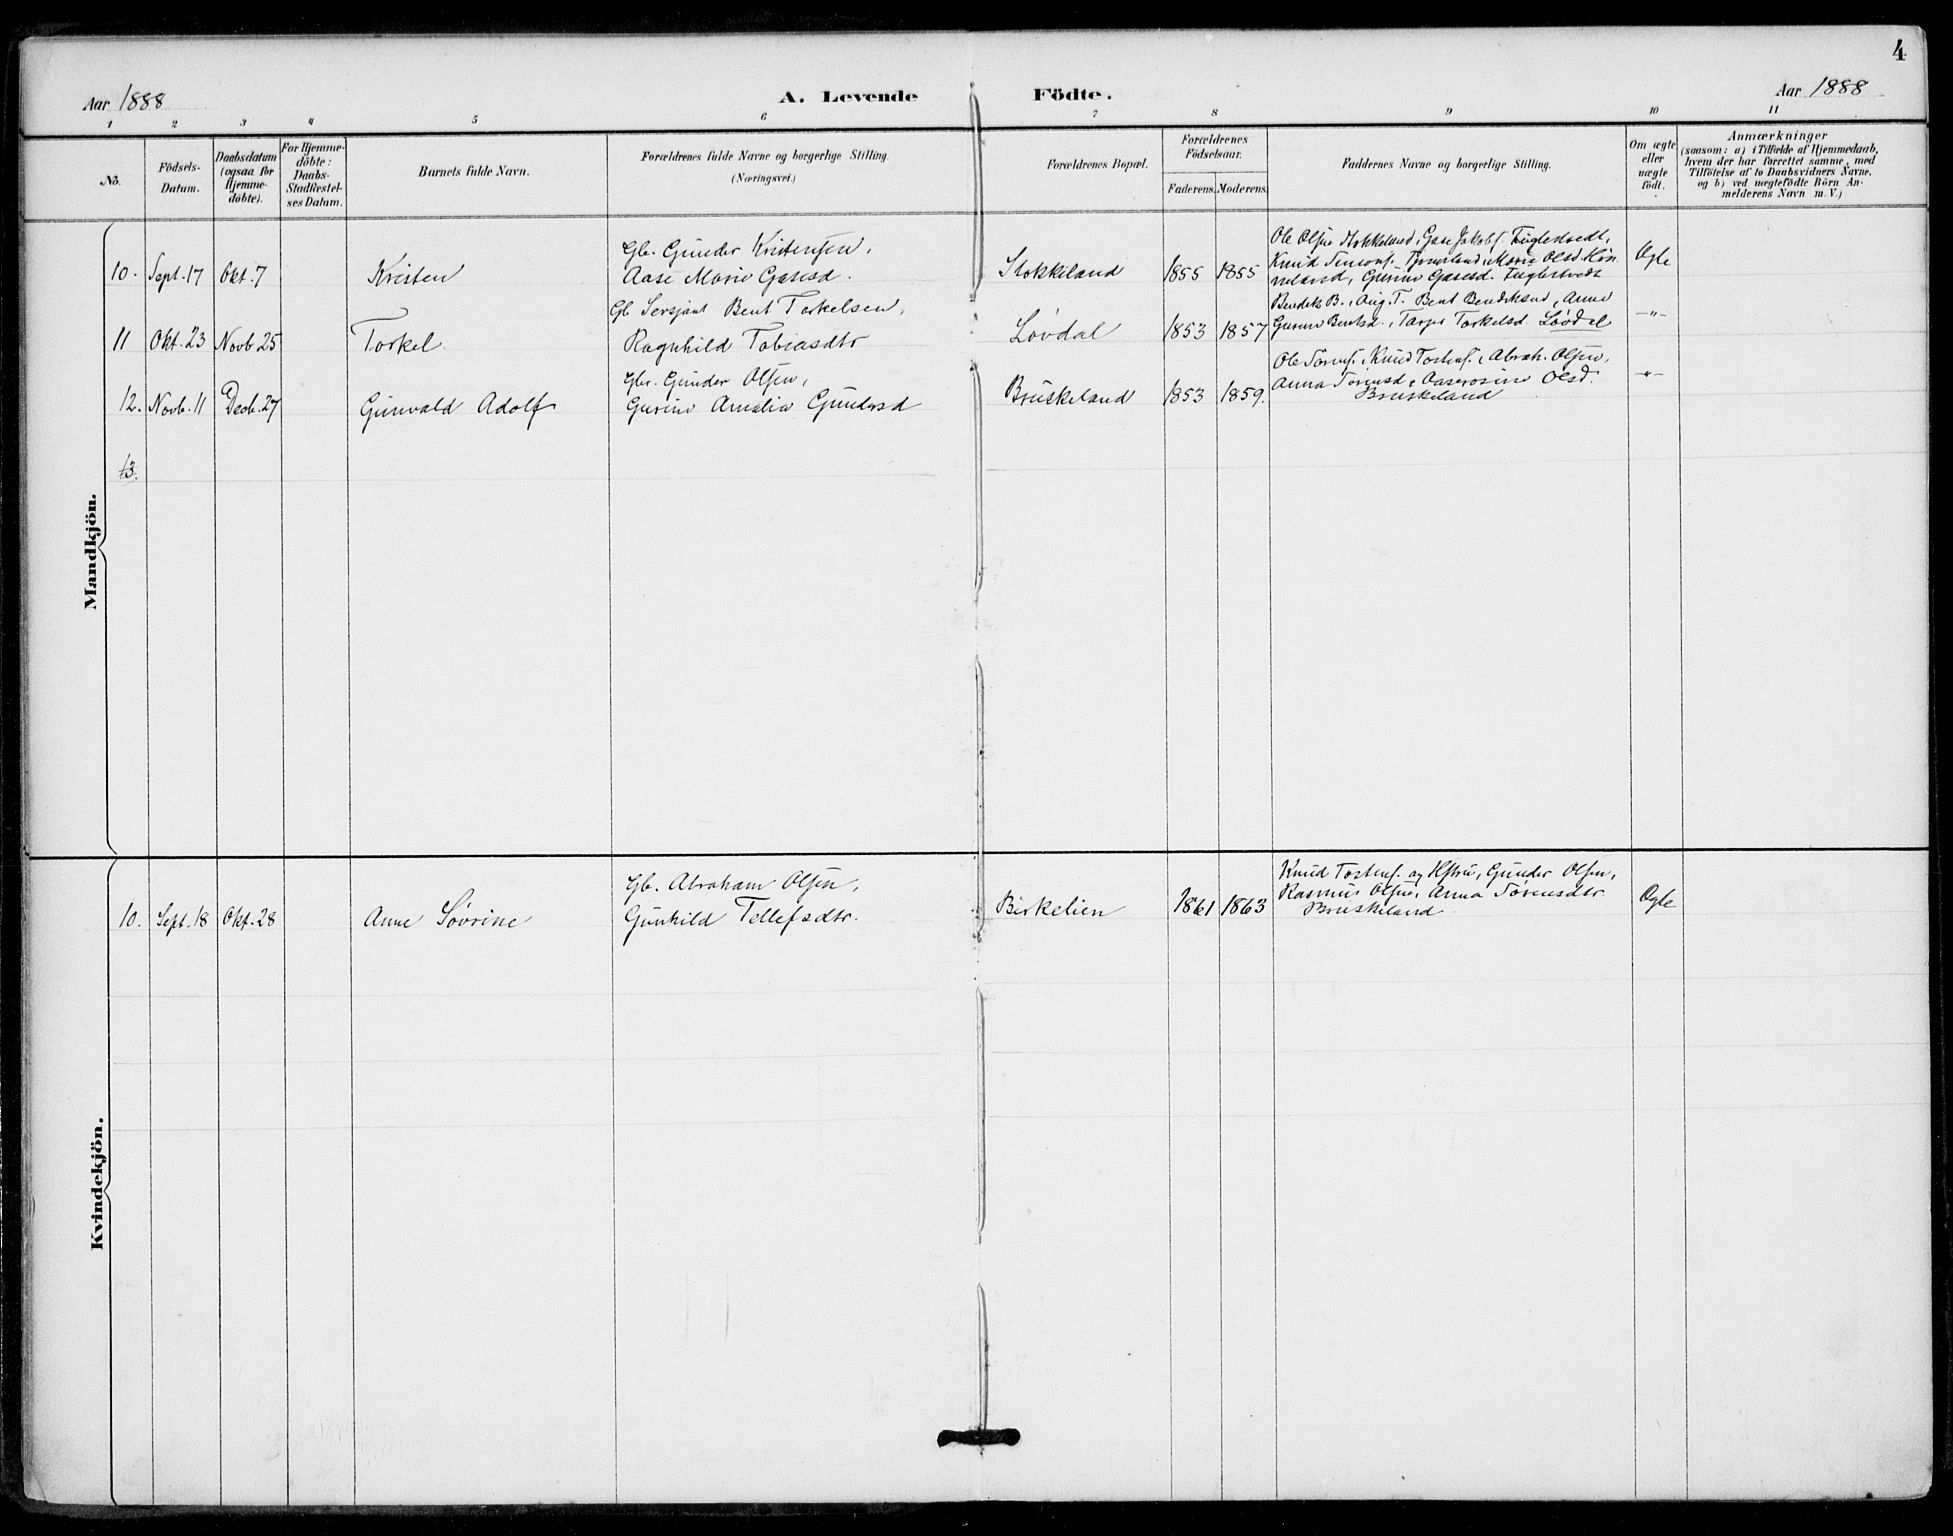 4
Aar 1888
A. Levende Födte.
Aar 1888
1 2 3 4 5 6 7 8 9 10 11
No.
Födsels-
Datum.
Daabsdatum
(ogsaa for
Hjemme-
döbte).
For Hjemme-
döbte:
Daabs-
Stadfæstel-
ses Datum.
Barnets fulde Navn.
Forældrenes fulde Navne og borgerlige Stilling.
(Næringsvei.)
Forældrenes Bopæl.
Forældrenes
Födselsaar.
Faderens. Moderens.
Faddernes Navne og borgerlige Stilling.
Om ægte
eller
uægte
födt.
Anmærkninger
(saasom: a) i Tilfælde af Hjemmedaab,
hvem der har forrettet samme, med
Tilföielse af to Daabsvidners Navne.
og b) ved uægtefödte Börn An-
melderens Navn m. V.)
Mandkjön.
Gbr. Gunder Kristensen,
10. Sept. 17 Okt. 7 Kristen Aase Marie Gasesd. Stokkeland 1855 1855
Ole Olsen Stokkeland, Gase Jakobs. Fuglestvedt,
Knud Tensons. Marie Olsd. Hön
neland, Gurine Gasesd. Fuglestvedt
Ægte
Gb. Sersjant Bent Torkelsen,
11 Okt. 23 Novb 25 Torkel Ragnhild Tobiasdtr Lövdal 1853 1857
Bendik B., Aug. T. Bent Bendiksen, Anne
Gurine Bentsd., Tarjer Torkelsd Lövdal
-"-
Gbr. Gunder Olsen,
12. Novb. 11 Decb. 27 Gunvald Adolf Gurine Amalia Gundersd Bruskeland 1853 1859.
Ole Sörens., Knud Tostens., Abrah. Olsen,
Anna Sörensd., Aaserosine Olsd.
Bruskeland
-"-
13.
Kvindekjön.
Gb. Abraham Olsen,
10. Sept. 18 Okt. 28 Anne Sövrine Gunhild Tellefsdtr. Birkelien 1861 1863
Knud Tostens. og Hstru, Gunder Olsen,
Rasmus Olsen, Anna Sörensdtr.
Bruskeland
Ægte